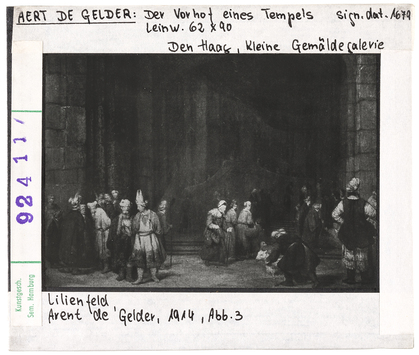 AERT DE GELDER: Der Vorhof eines Tempels sign. dat. 1679
Leinw. 62 x 90
Den Haag, Kleine Gemäldegalerie
924117
Kunstgesch.
Sem. Hamburg
Lilienfeld
Arent de Gelder, 1914, Abb. 3